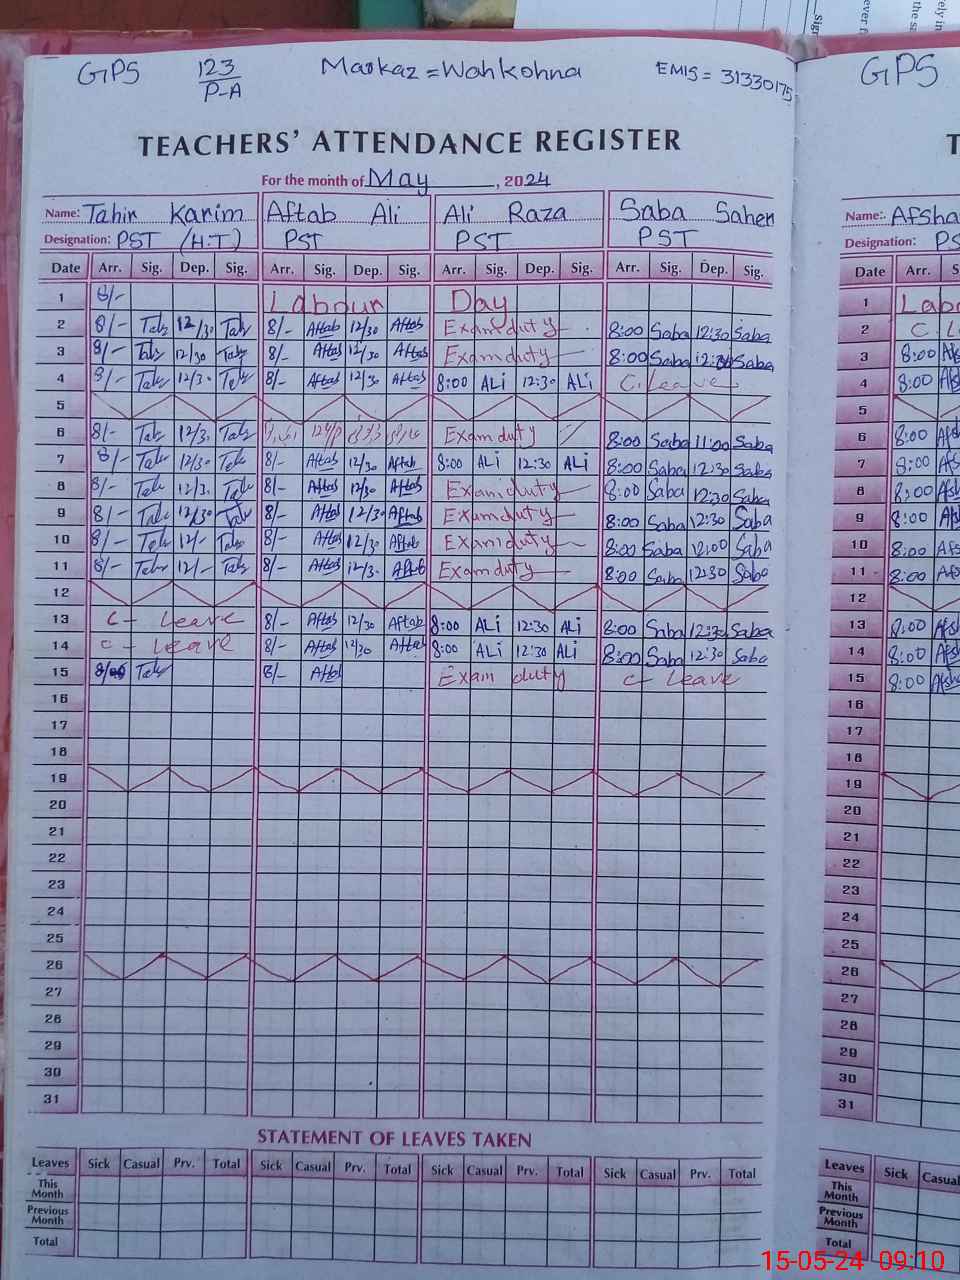 GPS 123/P-A Markaz = Wahkohna EMIS = 31330175 GPS
TEACHERS' ATTENDANCE REGISTER
For the month of May, 2024
Name: Tahir Karim Aftab Ali Ali Raza Saba Saher Name: Afsha
Designation: PST (H.T) PST PST PST Designation: PS
Date Arr. Sig. Dep. Sig. Arr. Sig. Dep. Sig. Arr. Sig. Dep. Sig. Arr. Sig. Dep. Sig. Date Arr. S
1 8/- Labour Day 1 Labo
2 8/- Tahr 12/30 Tahr 8/- Aftab 12/30 Aftab Exam duty 8:00 Saba 12:30 Saba 2 C. L
3 8/- Tahr 12/30 Tahr 8/- Aftab 12/30 Aftab Exam duty 8:00 Saba 12:30 Saba 3 8:00 Afs
4 8/- Tahr 12/3. Tahr 8/- Aftab 12/30 Aftab 8:00 ALi 12:30 ALi C. Leave 4 8:00 Afs
5 5
6 8/- Tahr 12/3. Tahr Exam duty 8:00 Saba 11:00 Saba 6 8:00 Afs
7 8/- Tahr 12/30 Tahr 8/- Aftab 12/30 Aftab 8:00 ALi 12:30 ALi 8:00 Saba 12:30 Saba 7 8:00 Afs
8 8/- Tahr 12/3. Tahr 8/- Aftab 12/30 Aftab Exam duty 8:00 Saba 12:30 Saba 8 8:00 Afs
9 8/- Tahr 12/30 Tahr 8/- Aftab 12/30 Aftab Exam duty 8:00 Saba 12:30 Saba 9 8:00 Afs
10 8/- Tahr 12/- Tahr 8/- Aftab 12/30 Aftab Exam duty 8:00 Saba 12:00 Saba 10 8:00 Afs
11 8/- Tahr 12/- Tahr 8/- Aftab 12/3. Aftab Exam duty 8:00 Saba 12:30 Saba 11 8:00 Afs
12 12
13 C - Leave 8/- Aftab 12/30 Aftab 8:00 ALi 12:30 ALi 8:00 Saba 12:30 Saba 13 8:00 Afs
14 C - Leave 8/- Aftab 12/30 Aftab 8:00 ALi 12:30 ALi 8:00 Saba 12:30 Saba 14 8:00 Afs
15 Tahr 8/- Aftab Exam duty C - Leave 15 8:00 Afsh
16 16
17 17
18 18
19 19
20 20
21 21
22 22
23 23
24 24
25 25
26 26
27 27
28 28
29 29
30 30
31 31
STATEMENT OF LEAVES TAKEN
Leaves Sick Casual Prv. Total Sick Casual Prv. Total Sick Casual Prv. Total Sick Casual Prv. Total Leaves Sick Casual
This Month This Month
Previous Month Previous Month
Total Total
15-05-24 09:10